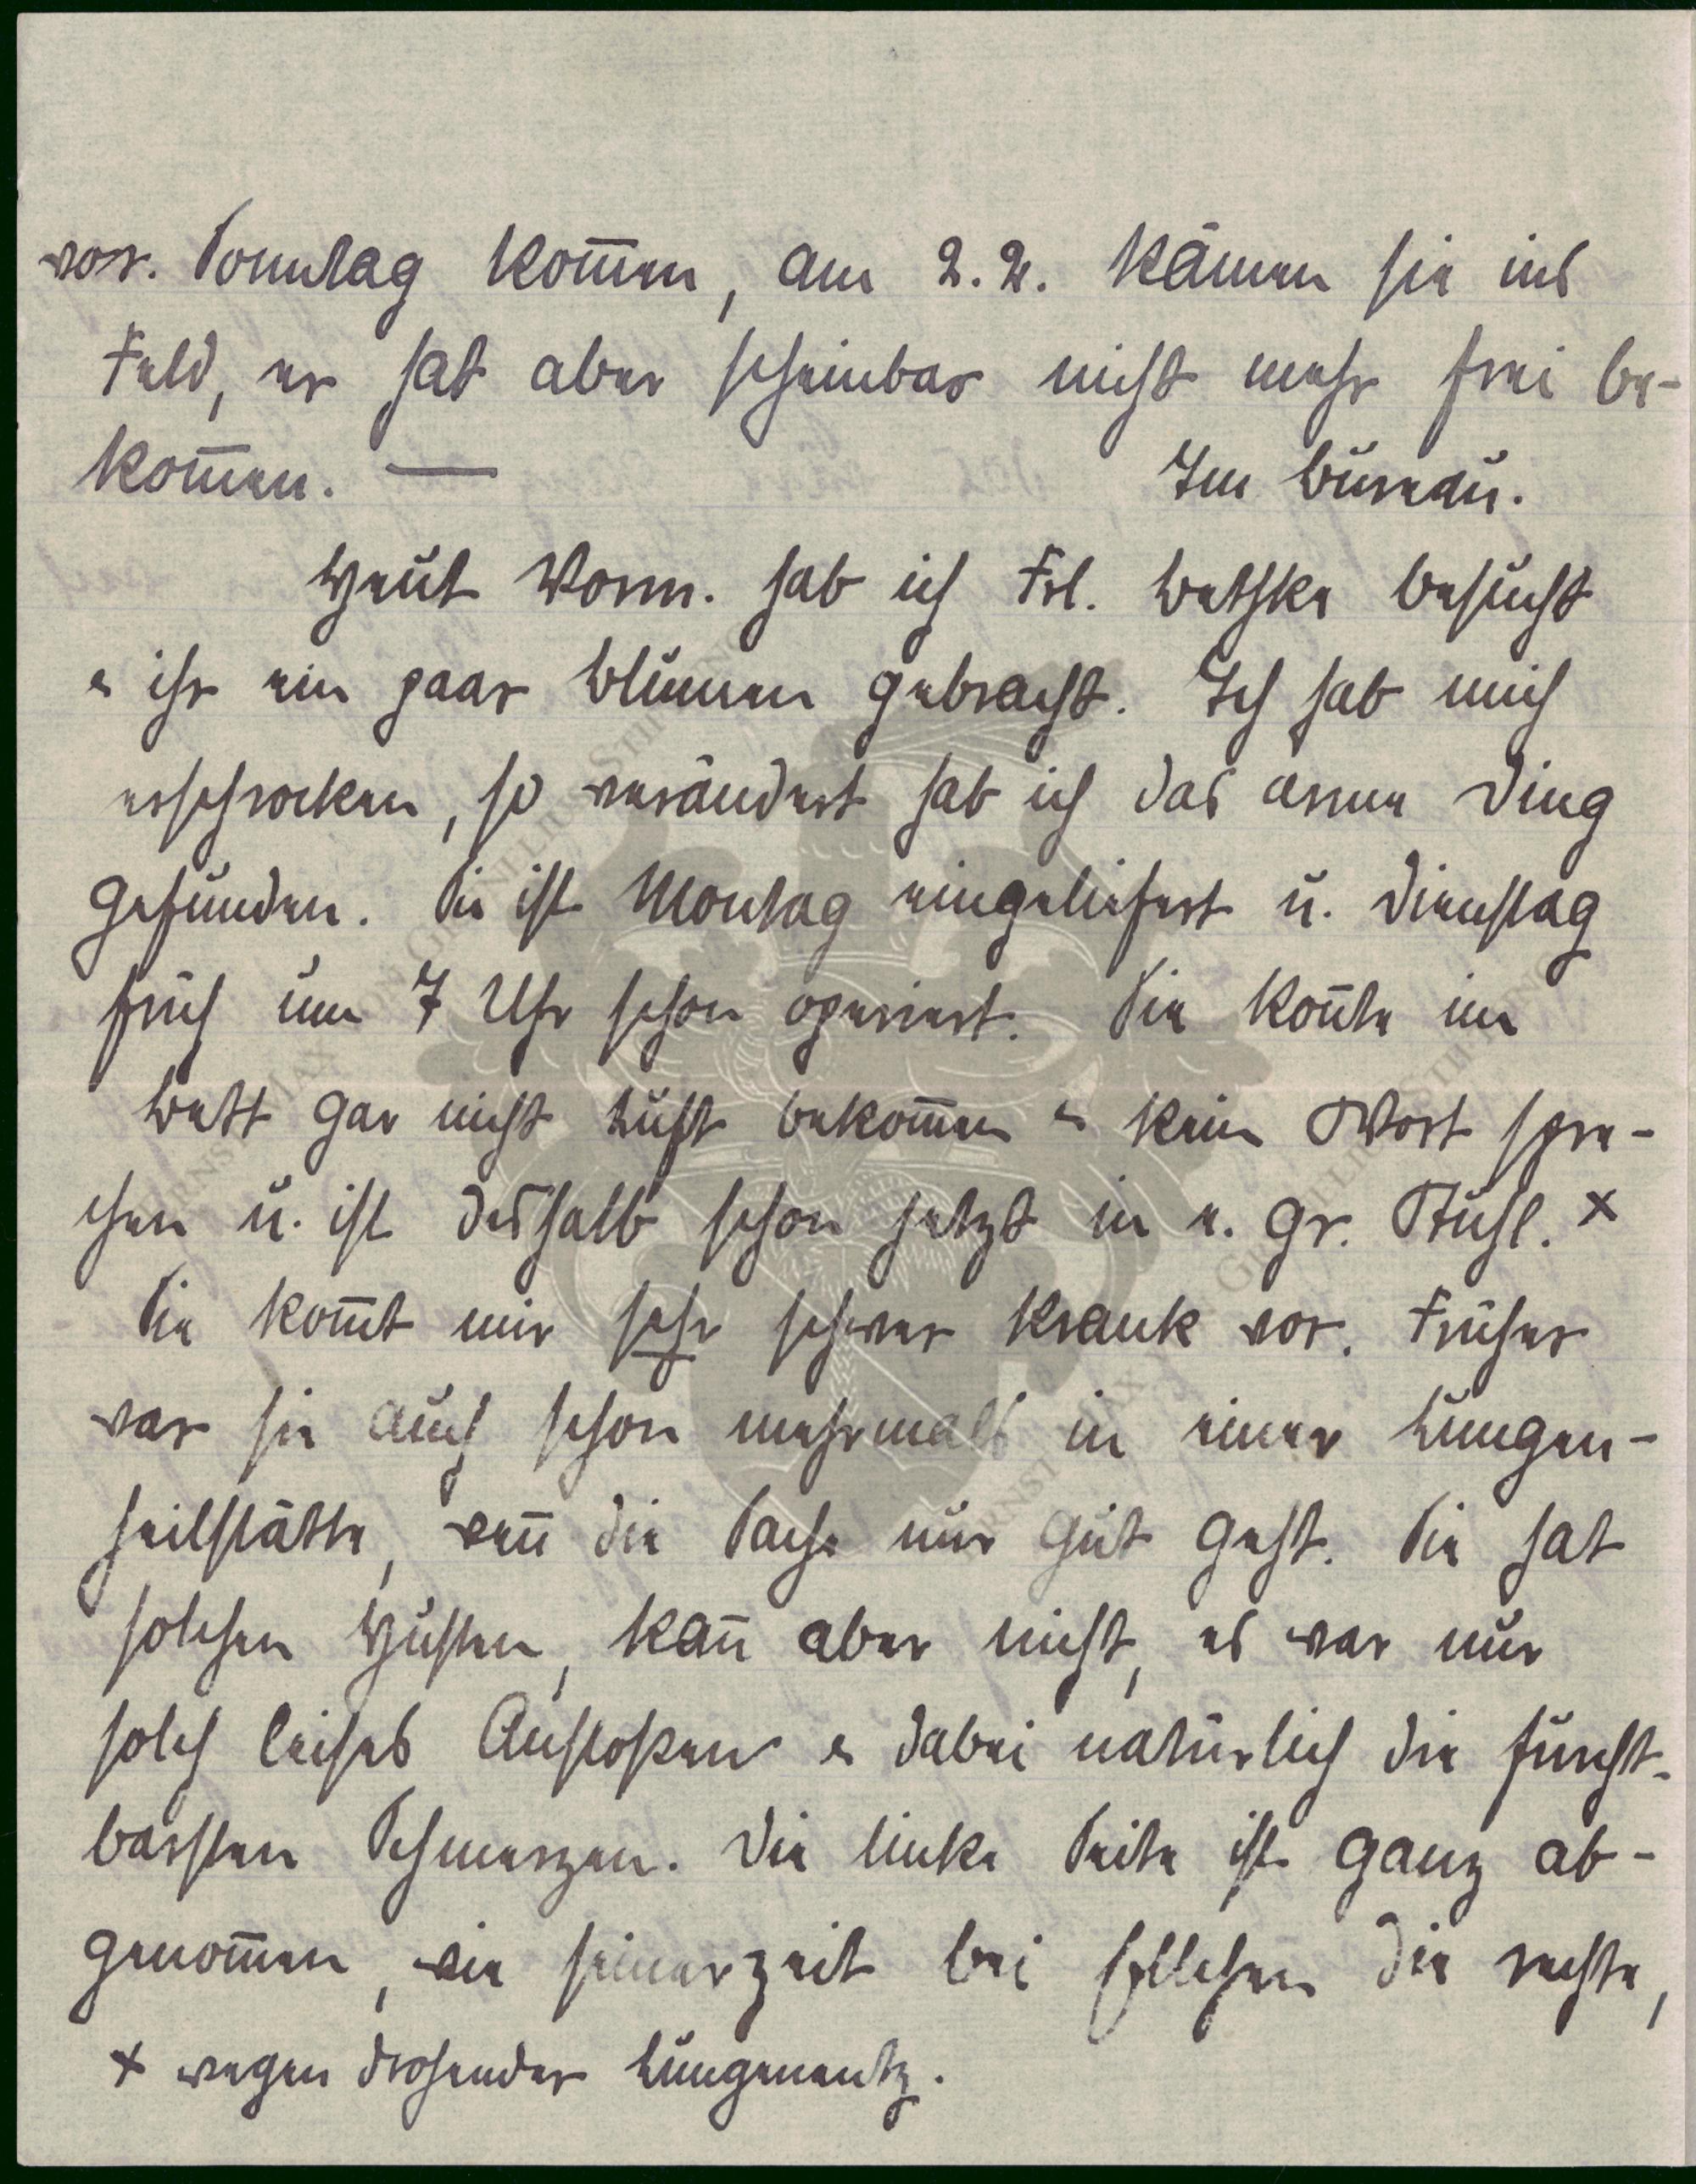 vor. Sonntag kom̅en, am 2.2. kämen sie ins
Feld, er hat aber scheinbar nicht mehr frei be-
kom̅en. —
Im Bureau.
Heut Vorm. hab ich Frl. Bethke besucht
& ihr ein paar Blumen gebracht. Ich hab mich
erschrocken, so verändert hab ich das arme Ding
gefunden. Sie ist Montag eingeliefert u. Dienstag
früh um 7 Uhr schon operiert. Sie kon̅te im
Bett gar nicht Luft bekom̅en & kein Wort spre-
chen u. ist deshalb schon jetzt in e. gr. Stuhl. x
Sie kom̅t mir sehr schwer krank vor. Früher
war sie auch schon mehrmals in einer Lungen-
heilstätte, wen̅ die Sache nur gut geht. Sie hat
solchen Husten, kan̅ aber nicht, es war nur
solch leises Anstoßen & dabei natürlich die furcht-
barsten Schmerzen. Die linke Seite ist ganz ab-
genom̅en, wie seinerzeit bei Ellchen die rechte,
x wegen drohender Lungenentz.